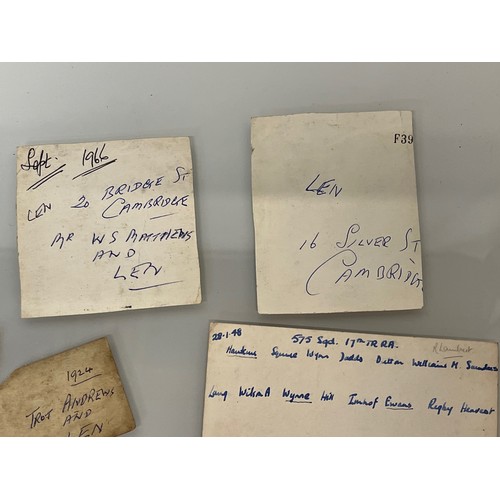 Sept. 1966
LEN 20 BRIDGE ST
CAMBRIDGE
MR W S MATTHEWS
AND
LEN
F39
LEN
16 SILVER ST
CAMBRIDG
1924
TROT ANDREWS
AND
LEN
28-1-48 575 Sqd. 17th TR RA.
Hawkins Squire Wynn Dodds Dutton Williams M. Saunders
Lang Wilson A Wynne Hill Imhof Evans Rigby